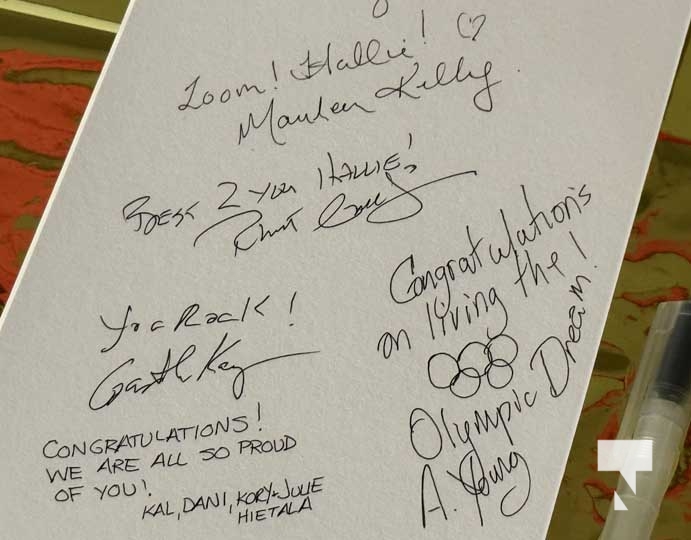 Zoom! Hallie! ♡
Maureen Kelly
Best 2 you Hallie!
You Rock!
Congratulations
on living the!
Olympic Dream.
A. Young
CONGRATULATIONS!
WE ARE ALL SO PROUD
OF YOU!
KAL, DANI, KORY + JULIE
HIETALA